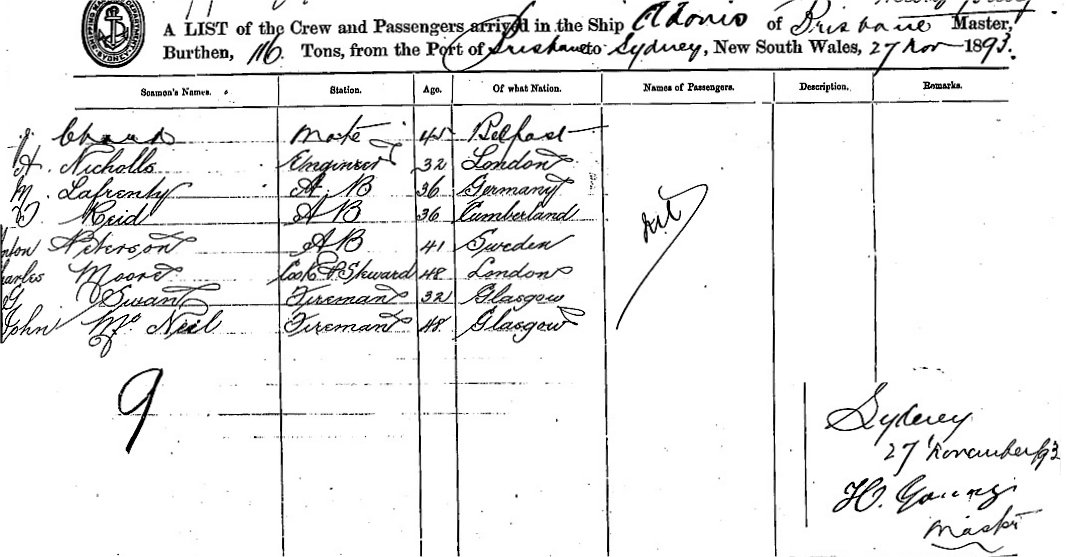 A LIST of the Crew and Passengers arrived in the Ship Adonis of Brisbane Master,
Burthen, 116. Tons, from the Port of Brisbane to Sydney, New South Wales, 27 Nov 1893.
Seamen's Names. Station. Age. Of what Nation. Names of Passengers. Description. Remarks.
Mate 45 Belfast
A. Nicholls Engineer 32 London
M. Lafrenty A.B 36 Germany
Reid AB 36 Cumberland
Anton Peterson AB 41 Sweden
Charles Moore Cook & Steward 48 London
G Swan Fireman 32 Glasgow
John Mc Neil Fireman 48 Glasgow
Nil
9
Sydney
27 November /93
H. Young
Master